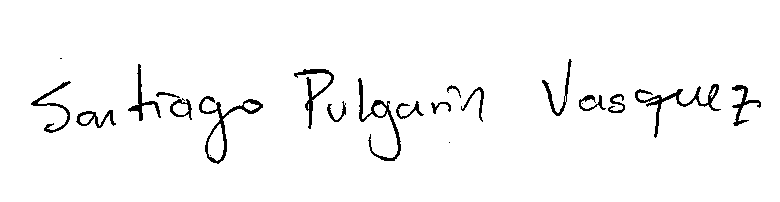 Santiago Pulgarín Vasquez